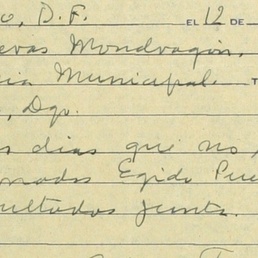 o, D. F. EL 12 DE
evas Mondragón,
cia Municipal. T
, Dgo.
s dias que no,
nados Egido Pue
ultados Junta.